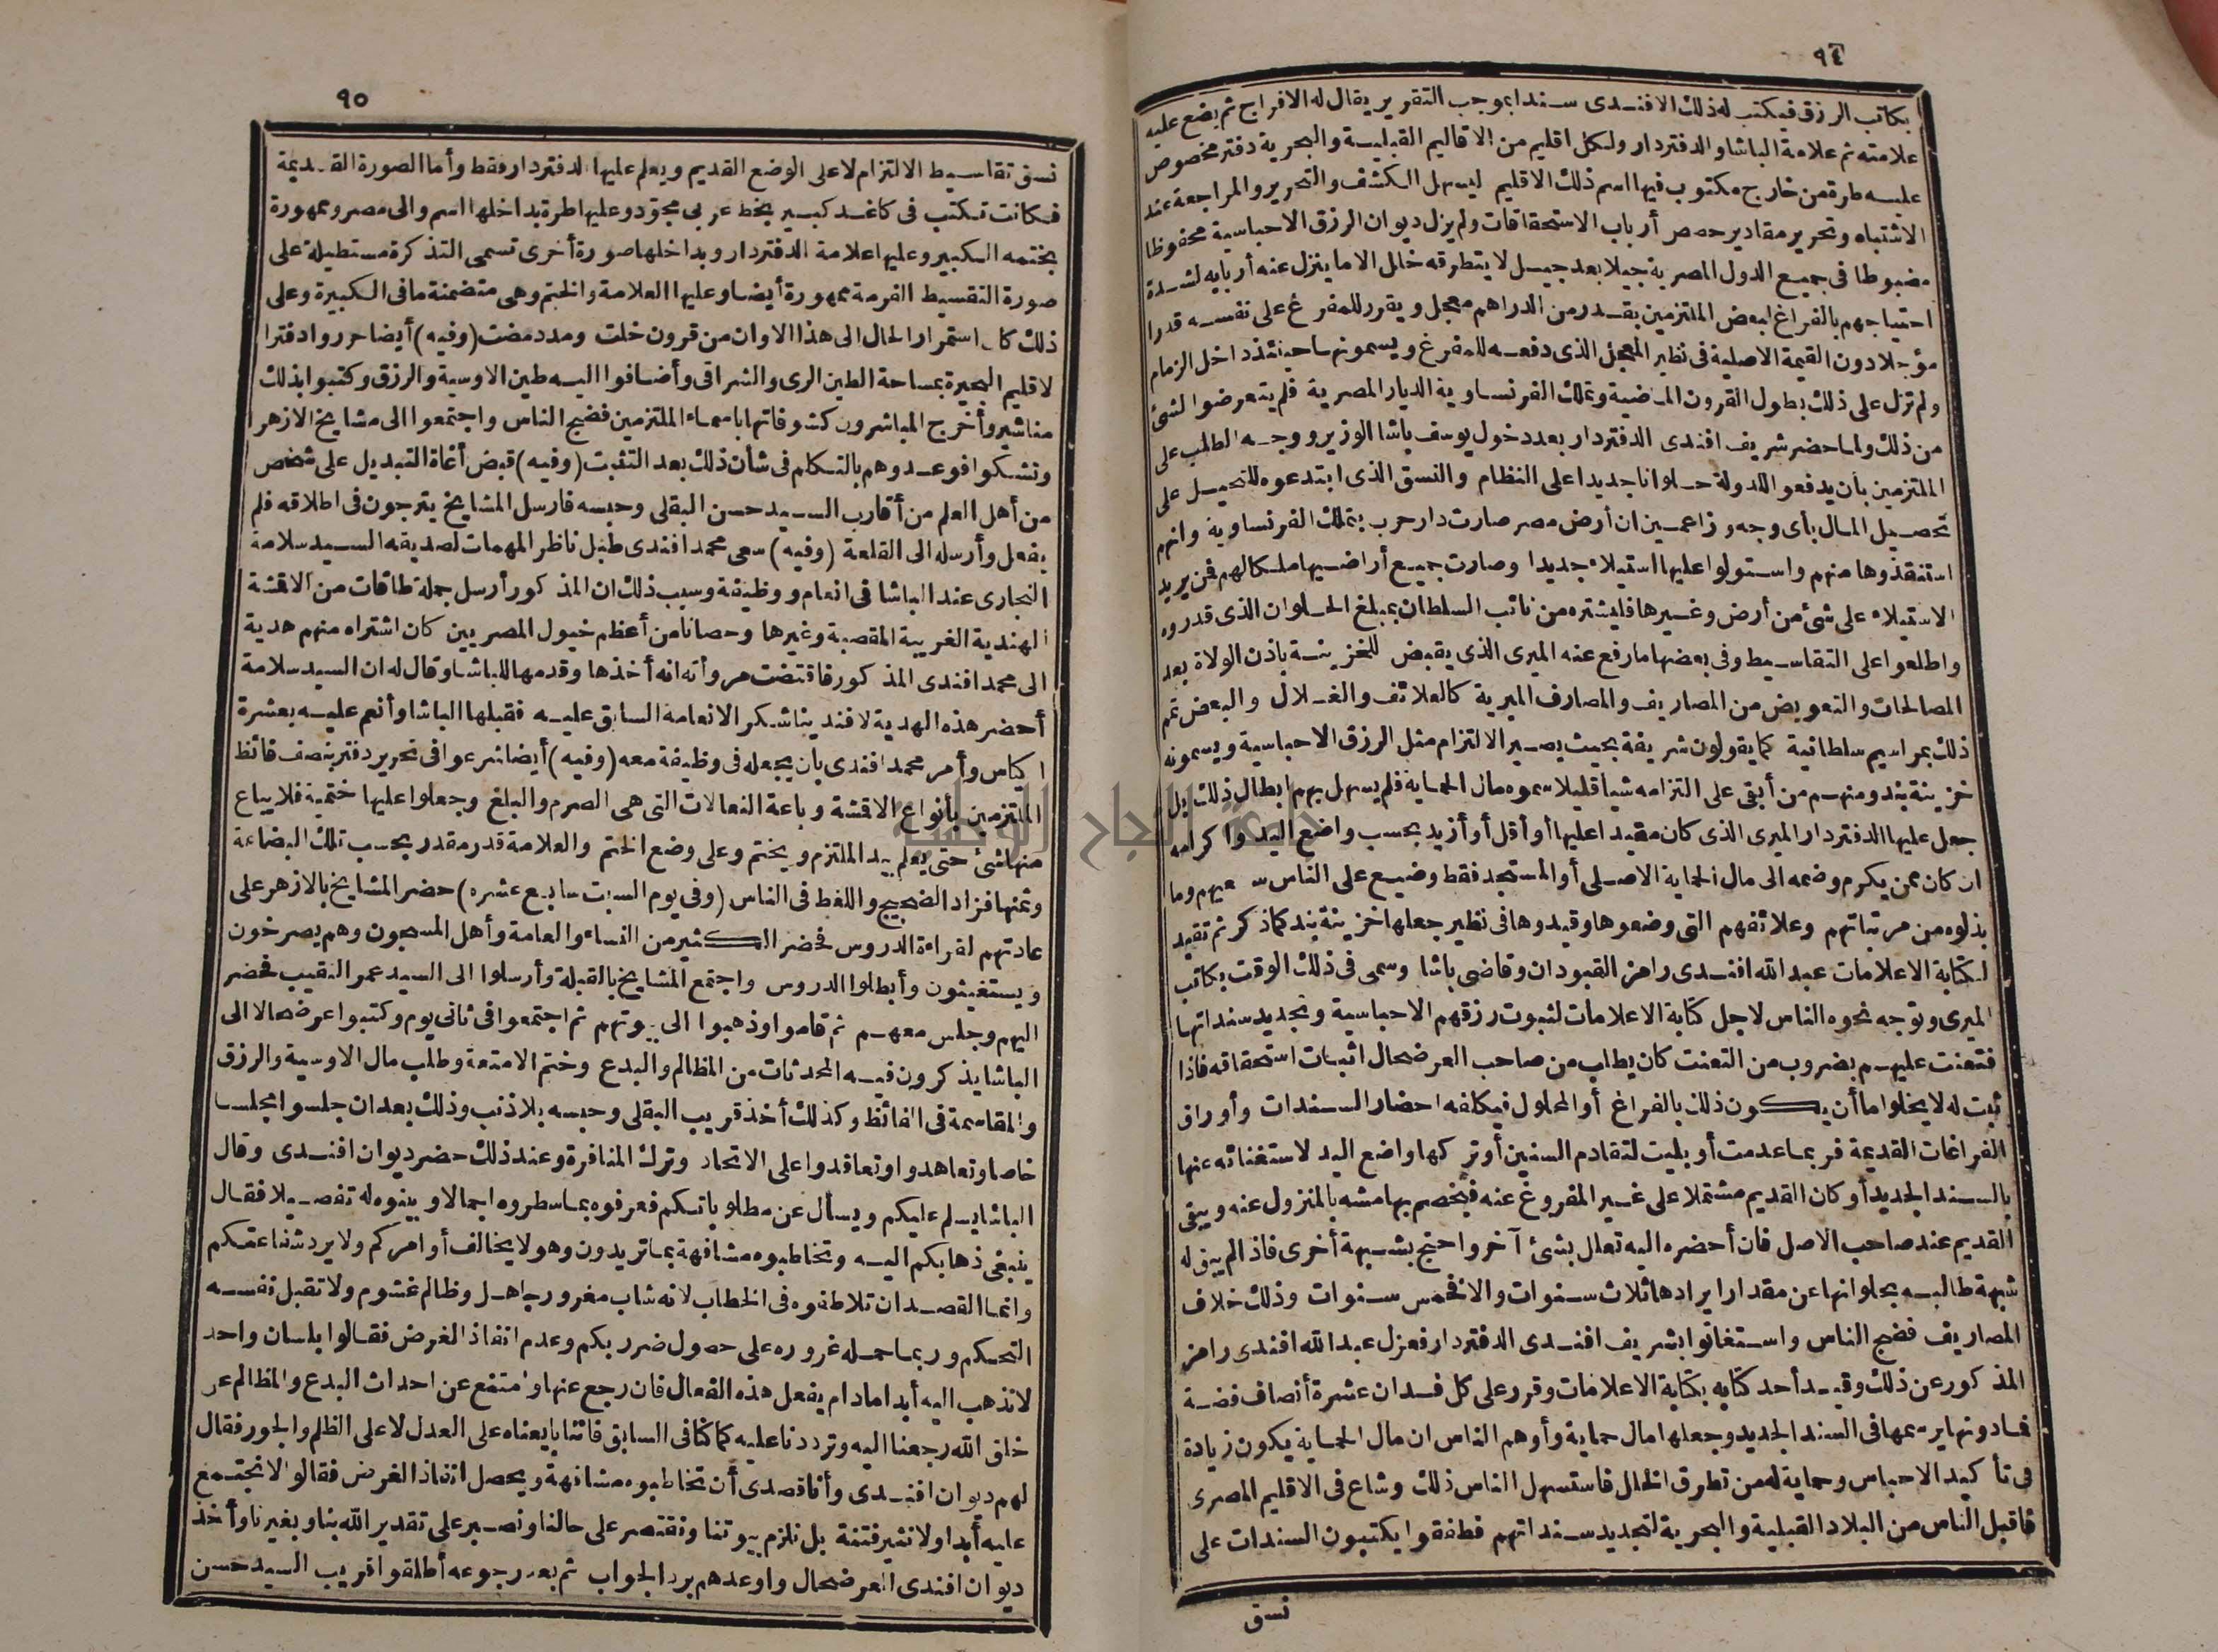 ٩٤
بكاتب الرزق فيكتب له ذلك الافندى سندا بموجب التقرير يقال له الافراج ثم يضع عليه
علامته ثم علامة الباشا والدفتردار ولكل اقليم من الاقاليم القبلية والبحرية دفتر مخصوص
عليه طرة من خارج مكتوب فيها اسم ذلك الاقليم ليسهل الكشف والتحرير والمراجعة عند
الاشتباه وتحرير مقادير حصص أرباب الاستحقاقات ولم يزل ديوان الرزق الاحباسية محفوظا
مضبوطا فى جميع الدول المصرية جيلا بعد جيل لا يتطرقه خلل الا ما ينزل عنه أربابه لشدة
احتياجهم بالفراغ لبعض الملتزمين بقدر من الدراهم معجل ويقرر للمفرغ على نفسه قدرا
مؤجلا دون القيمة الاصلية فى نظير المعجل الذى دفعه للمفرغ ويسمونها حينئذ داخل الزمام
ولم تزل على ذلك بطول القرون الماضية وتملك الفرنساوية الديار المصرية فلم يتعرضوا لشئ
من ذلك ولما حضر شريف افندى الدفتردار بعد دخول يوسف باشا الوزير ووجه الطلب على
الملتزمين بأن يدفعوا للدولة حلوانا جديدا على النظام والنسق الذى ابتدعوه للتحيل على
تحصيل المال بأى وجه وزاعمين ان أرض مصر صارت دار حرب بتملك الفرنساوية وانهم
استنقذوها منهم واستولوا عليها استيلاء جديدا وصارت جميع أراضيها ملكا لهم فمن يريد
الاستيلاء على شئ من أرض وغيرها فليشتره من نائب السلطان بمبلغ الحلوان الذى قدروه
واطلعوا على التقاسيط وفى بعضها ما رفع عنه الميرى الذى يقبض للخزينة باذن الولاة بعد
المصالحات والتعويض من المصاريف والمصارف الميرية كالعلائف والغلال والبعض تمم
ذلك بمراسيم سلطانية كما يقولون شريفة بحيث يصير الالتزام مثل الرزق الاحباسية ويسمونه
خزينة بند ومنهم من أبقى على التزامه شيأ قليلا سموه مال الحماية فلم يسهل بهم ابطال ذلك بل
جعل عليها الدفتردار الميرى الذى كان مقيدا عليها أو أقل أو أزيد بحسب واضع اليد واكرامه
ان كان ممن يكرم وضمه الى مال الحماية الاصلى أو المستجد فقط وضيع على الناس سعيهم وما
بذلوه من مرتباتهم وعلائفهم التى وضعوها وقيدوها فى نظير جعلها خزينة بند كما ذكر ثم تقيد
لكتابة الاعلامات عبد الله افندى رامز القبودان وقاضى باشا وسمى فى ذلك الوقت بكاتب
الميرى وتوجه نحوه الناس لاجل كتابة الاعلامات لثبوت رزقهم الاحباسية وتجديد سنداتها
فتعنت عليهم بضروب من التعنت كان يطلب من صاحب العرضحال اثبات استحقاقه فاذا
ثبت له لا يخلو اما أن يكون ذلك بالفراغ أو المحلول فيكلفه احضار السندات وأوراق
الفراغات القديمة فربما عدمت أو بليت لتقادم السنين أو تركها واضع اليد لاستغنائه عنها
بالسند الجديد أو كان القديم مشتملا على غير المفروغ عنه فيخصم بهامشه بالمنزول عنه ويبقى
القديم عند صاحب الاصل فان أحضره اليه تعلل بشئ آخر واحتج بشبهة أخرى فاذا لم يبق له
شبهة طالبه بحلوانها عن مقدار ايرادها ثلاث سنوات والا فخمس سنوات وذلك خلاف
المصاريف فضج الناس واستغاثوا بشريف افندى الدفتردار فعزل عبد الله افندى رامز
المذكور عن ذلك وقيد أحد كتابه بكتابة الاعلامات وقرر على كل فدان عشرة أنصاف فضة
فما دونها يرسمها فى السند الجديد وجعلها مال حماية وأوهم الناس ان مال الحماية يكون زيادة
فى تأكيد الاحباس وحماية له من تطرق الخلل فاستسهل الناس ذلك وشاع فى الاقليم المصرى
فاقبل الناس من البلاد القبلية والبحرية لتجديد سنداتهم فطفقوا يكتبون السندات على
نسق
٩٥
نسق تقاسيط الالتزام لا على الوضع القديم ويعلم عليها الدفتردار فقط وأما الصورة القديمة
فكانت تكتب فى كاغد كبير بخط عربى مجود وعليها طرة بداخلها اسم والى مصر وممهورة
بختمه الكبير وعليها علامة الدفتردار وبداخلها صورة أخرى تسمى التذكرة مستطيلة على
صورة التقسيط الفرمة ممهورة أيضا وعليها العلامة والختم وهى متضمنة ما فى الكبيرة وعلى
ذلك كان استمرار الحال الى هذا الاوان من قرون خلت ومدد مضت (وفيه) أيضا حرروا دفترا
لاقليم البحيرة بمساحة الطين الرى والشراقى وأضافوا اليه طين الاوسية والرزق وكتبوا بذلك
مناشير وأخرج المباشرون كشوفاتها باسماء الملتزمين فضج الناس واجتمعوا الى مشايخ الازهر
وتشكوا فوعدوهم بالتكلم فى شأن ذلك بعد التثبت (وفيه) قبض أغاة التبديل على شخص
من أهل العلم من أقارب السيد حسن البقلى وحبسه فارسل المشايخ يترجون فى اطلاقه فلم
يفعل وأرسله الى القلعة (وفيه) سعى محمد افندى طبل ناظر المهمات لصديقه السيد سلامة
النجارى عند الباشا فى انعام ووظيفة وسبب ذلك ان المذكور أرسل جملة طاقات من الاقمشة
الهندية الغريبة المقصبة وغيرها وحصانا من أعظم خيول المصريين كان اشتراه منهم هدية
الى محمد افندى المذكور فاقتضت مروأته انه أخذها وقدمها للباشا وقال له ان السيد سلامة
أحضر هذه الهدية لافندينا شكر الانعامه السابق عليه فقبلها الباشا وأنعم عليه بعشرة
اكياس وأمر محمد افندى بأن يجعله فى وظيفة معه (وفيه) أيضا شرعوا فى تحرير دفتر بنصف فائظ
الملتزمين بأنواع الاقمشة وباعة النعالات التى هى الصرم والبلغ وجعلوا عليها ختمية فلا يباع
منها شئ حتى يعلم بيد الملتزم ويختم وعلى وضع الختم والعلامة قدر مقدر بحسب تلك البضاعة
وثمنها فزاد الضجيج واللغط فى الناس (وفى يوم السبت سابع عشره) حضر المشايخ بالازهر على
عادتهم لقراءة الدروس فحضر الكثير من النساء والعامة وأهل المسجون وهم يصرخون
ويستغيثون وأبطلوا الدروس واجتمع المشايخ بالقبلة وأرسلوا الى السيد عمر النقيب فحضر
اليهم وجلس معهم ثم قاموا وذهبوا الى بيوتهم ثم اجتمعوا فى ثانى يوم وكتبوا عرضحالا الى
الباشا يذكرون فيه المحدثات من المظالم والبدع وختم الامتعة وطلب مال الاوسية والرزق
والمقاسمة فى الفائظ وكذلك أخذ قريب البقلى وحبسه بلا ذنب وذلك بعد ان جلسوا مجلسا
خاصا وتعاهدوا وتعاقدوا على الاتحاد وترك المنافرة وعند ذلك حضر ديوان افندى وقال
الباشا يسلم عليكم ويسأل عن مطلوباتكم فعرفوه بما سطروه اجمالا وبينوه له تفصيلا فقال
ينبغى ذهابكم اليه وتخاطبوه مشافهة بما تريدون وهو لا يخالف أوامركم ولا يرد شفاعتكم
وانما القصد ان تلاطفوه فى الخطاب لانه شاب مغرور جاهل وظالم غشوم ولا تقبل نفسه
التحكم وربما حمله غروره على حصول ضرر بكم وعدم انفاذ الغرض فقالوا بلسان واحد
لا نذهب اليه أبدا ما دام يفعل هذه الفعال فان رجع عنها وامتنع عن احداث البدع والمظالم عن
خلق الله رجعنا اليه وترددنا عليه كما كنا فى السابق فاننا بايعناه على العدل لا على الظلم والجور فقال
لهم ديوان افندى وأنا قصدى أن تخاطبوه مشافهة ويحصل انفاذ الغرض فقالوا لا نجتمع
عليه أبدا ولا نثير فتنة بل نلزم بيوتنا ونقتصر على حالنا ونصبر على تقدير الله بنا وبغيرنا وأخذ
ديوان افندى العرضحال واوعدهم برد الجواب ثم بعد رجوعه أطلقوا قريب السيد حسن